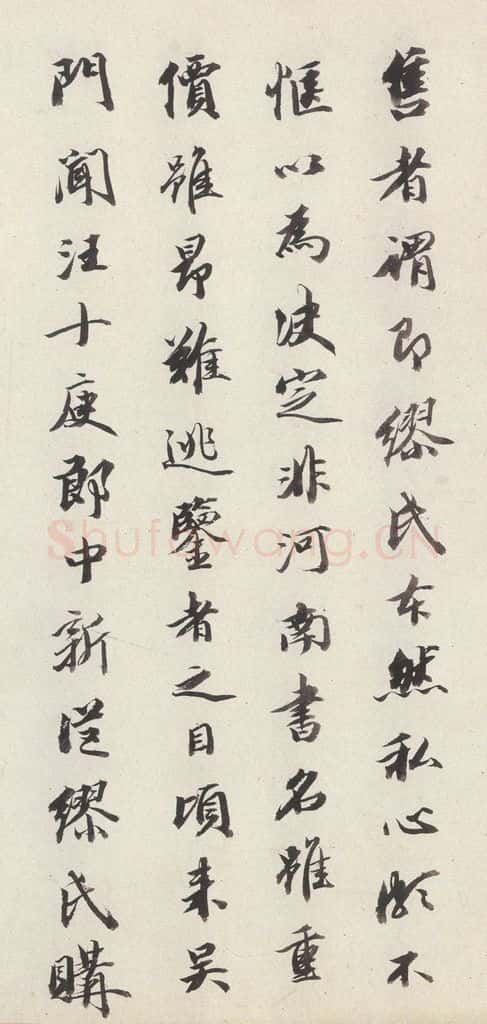 售者謂即繆氏本然私心頗不
愜以為決定非河南書名雖重
價雖昂難逃鑒者之目頃来吴
門聞汪十庚郎中新從繆氏購
Shufawang.CN